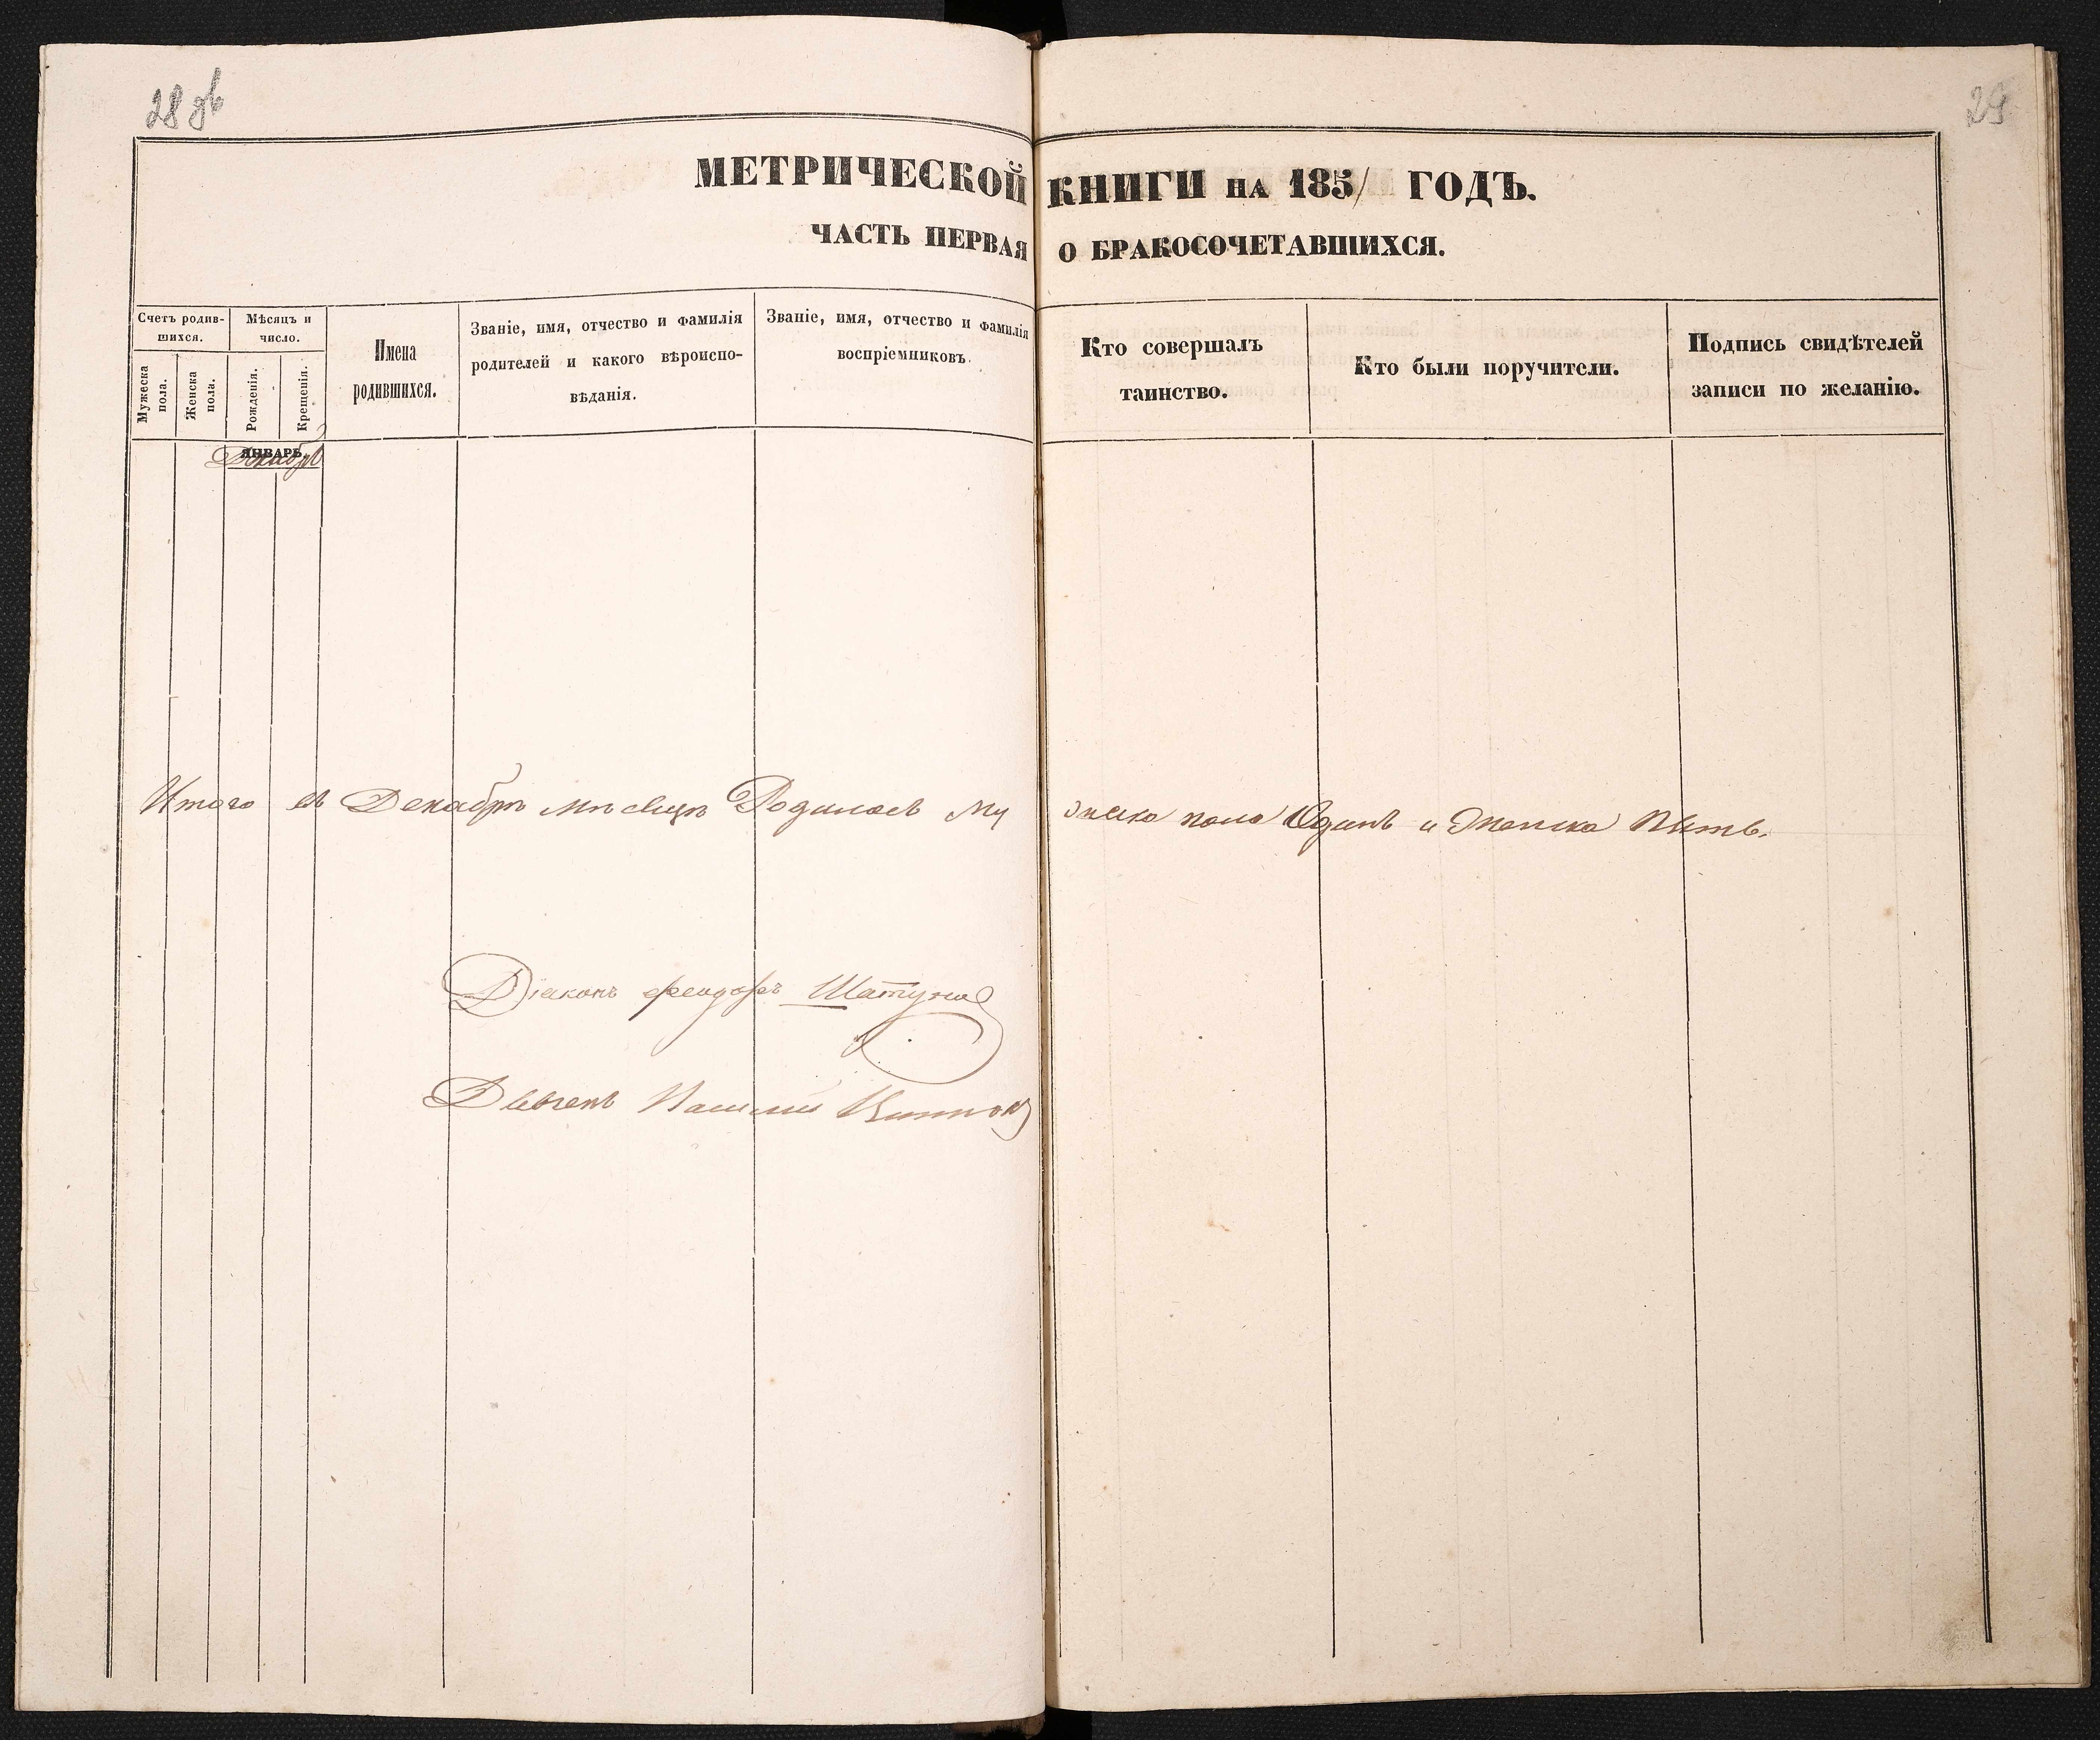 28 об
29
МЕТРИЧЕСКОЙ КНИГИ НА 185/ ГОДЪ.
ЧАСТЬ ПЕРВАЯ О БРАКОСОЧЕТАВШИХСЯ.
Счетъ родив-
шихся.
Мужеска пола.
Женска пола.
Мѣсяцъ и
число.
Рожденія.
Крещенія.
Имена
родившихся.
Званіе, имя, отчество и фамилія
родителей и какого вѣроиспо-
вѣданія.
Званіе, имя, отчество и фамилія
воспріемниковъ.
Кто совершалъ
таинство.
Кто были поручители.
Подпись свидѣтелей
записи по желанію.
ЯНВАРЬ.
Декабрь
Итого въ Декабрѣ мѣсяцѣ Родилось мужеска пола Одинъ и Женска Пять.
Діаконъ Феодоръ
Дьячекъ